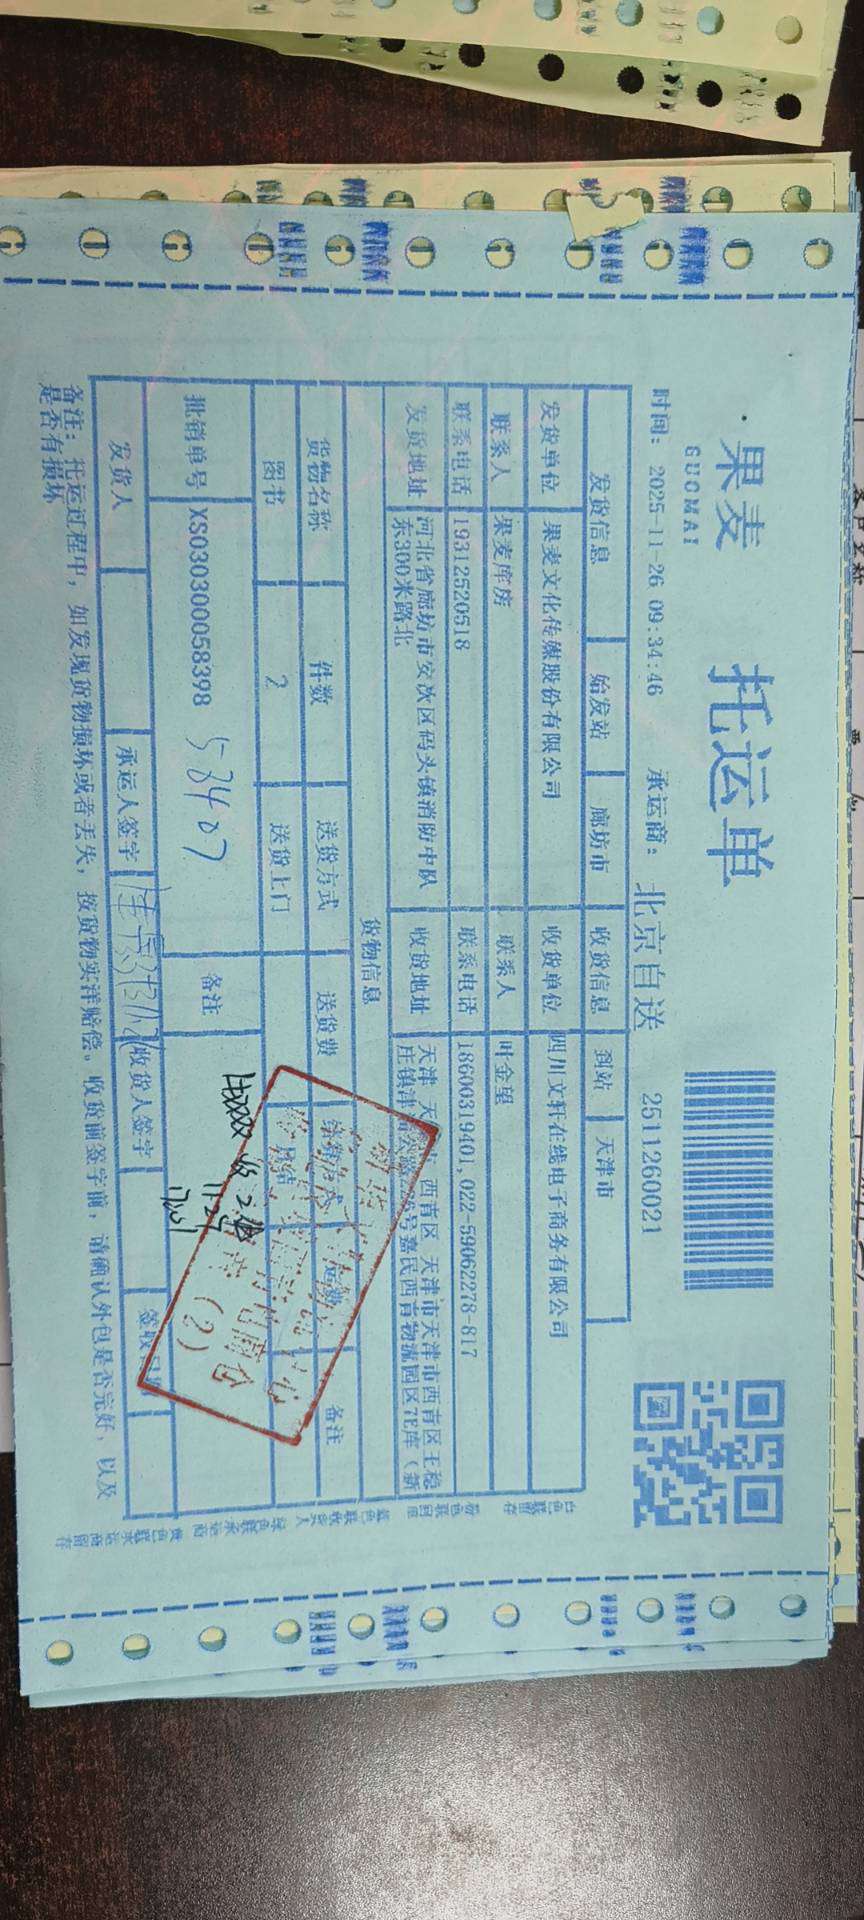 果麦
GUOMAI
托运单
时间: 2025-11-26 09:34:46 承运商: 北京自送 2511260021
发货信息 始发站 廊坊市 收货信息 到站 天津市
发货单位 果麦文化传媒股份有限公司 收货单位 四川文轩在线电子商务有限公司
联系人 果麦库房 联系人 叶金望
联系电话 19312520518 联系电话 18600319401, 022-59062278-817
发货地址 河北省廊坊市安次区码头镇消防中队 收货地址 天津 西青区 天津市天津市西青区王稳
东300米路北 庄镇津 号嘉民西青物流园区7E库（新
货物信息
货物名称 件数 送货方式 送货费 备注
图书 2 送货上门
批销单号 XS030300058398 53407 备注
收2包
11.26
发货人 承运人签字 收货人签字 签收日期
备注: 托运过程中, 如发现货物损坏或者丢失, 按货物实洋赔偿。收货前签字前, 请确认外包是否完好, 以及
是否有损坏
(2)